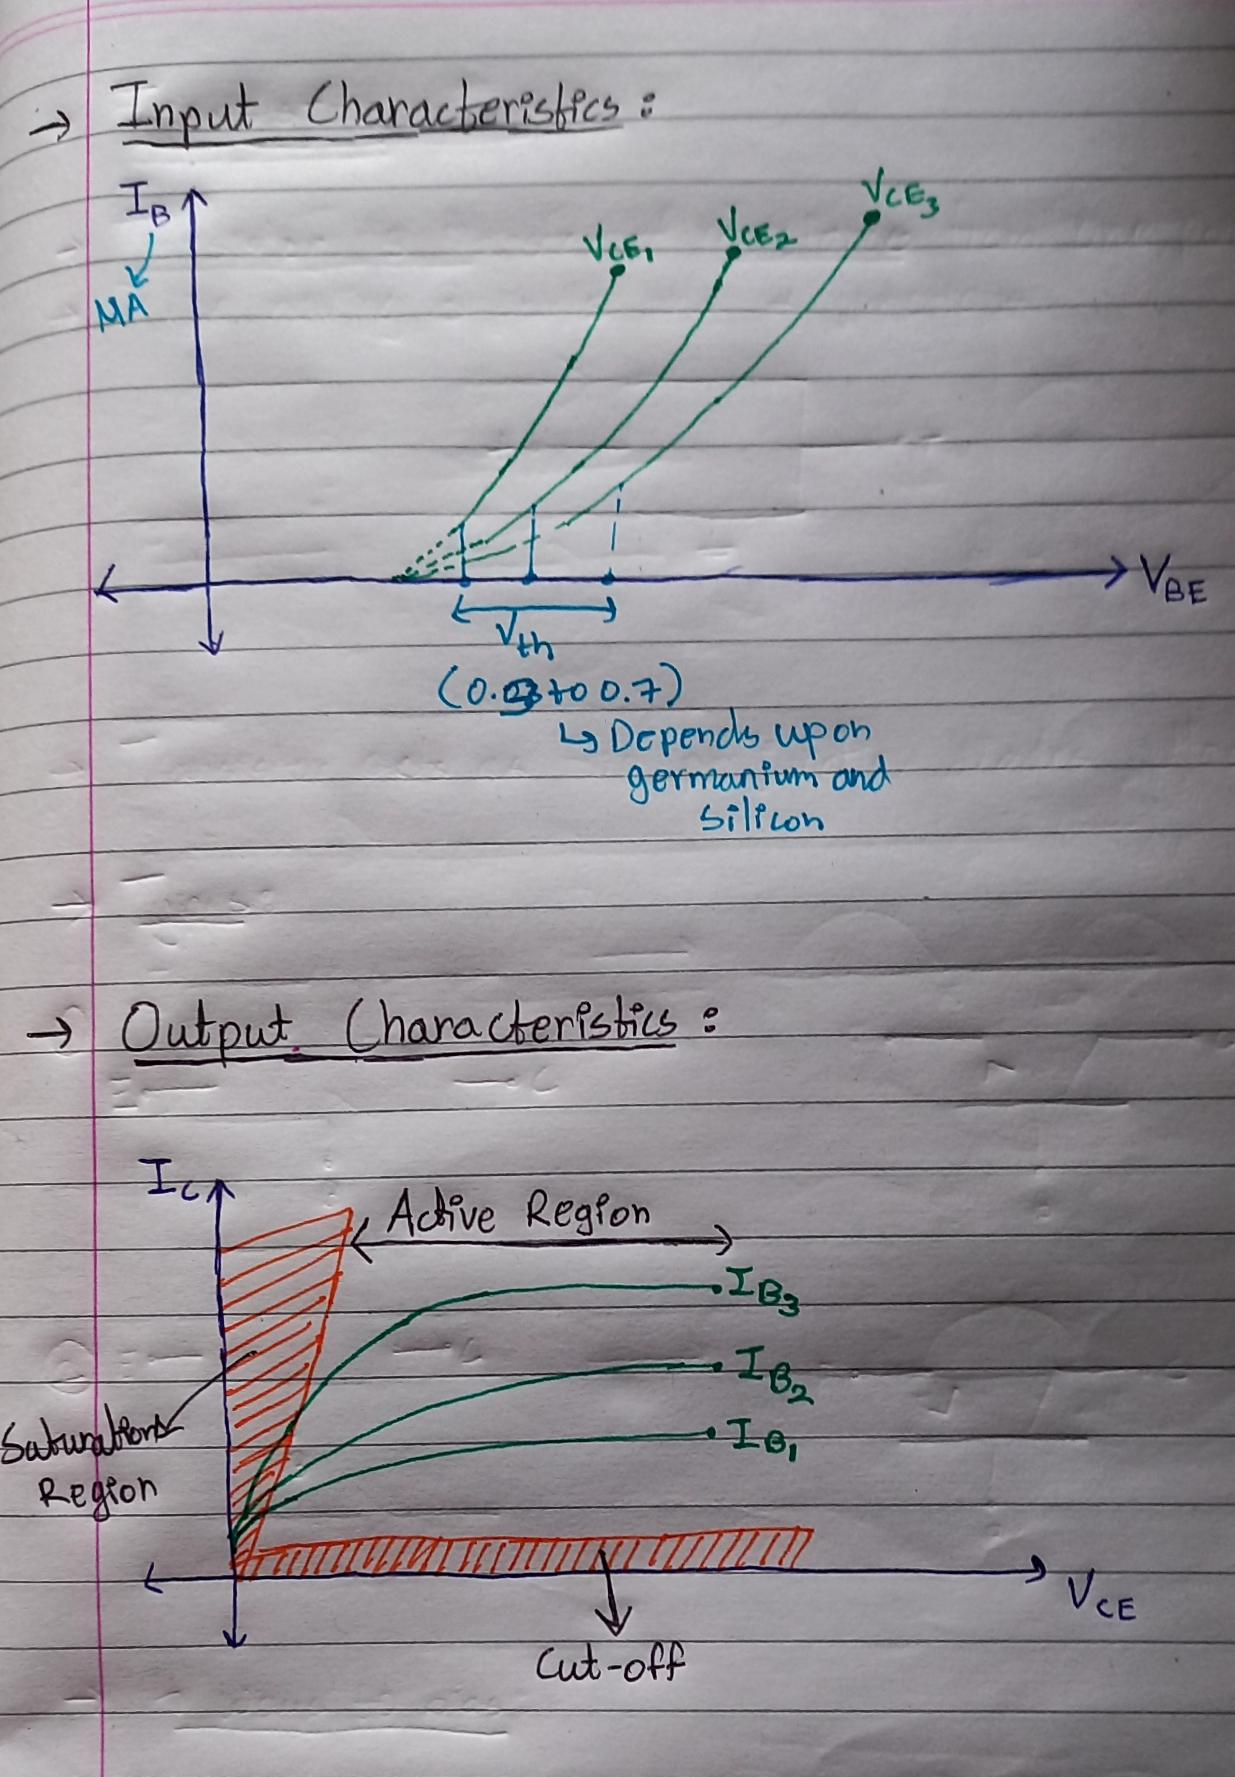 → Input Characteristics :
I_B
MA
V_CE₁
V_CE₂
V_CE₃
V_BE
V_th
(0.3 to 0.7)
↳ Depends upon
germanium and
silicon
→ Output Characteristics :
I_C
Active Region
I_B₃
I_B₂
I_B₁
Saturations
Region
V_CE
Cut-off